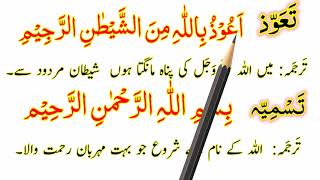 تَعَوُّذ اَعُوْذُ بِاللّٰهِ مِنَ الشَّیْطٰنِ الرَّجِیْمِ
تَرجَمہ: میں اللہ وَجَل کی پناہ مانگتا ہوں شیطان مردود سے۔
تَسْمِیَہ بِسْمِ اللّٰهِ الرَّحْمٰنِ الرَّحِیْمِ
تَرجَمہ: اللہ کے نام شروع جو بہت مہربان رحمت والا۔